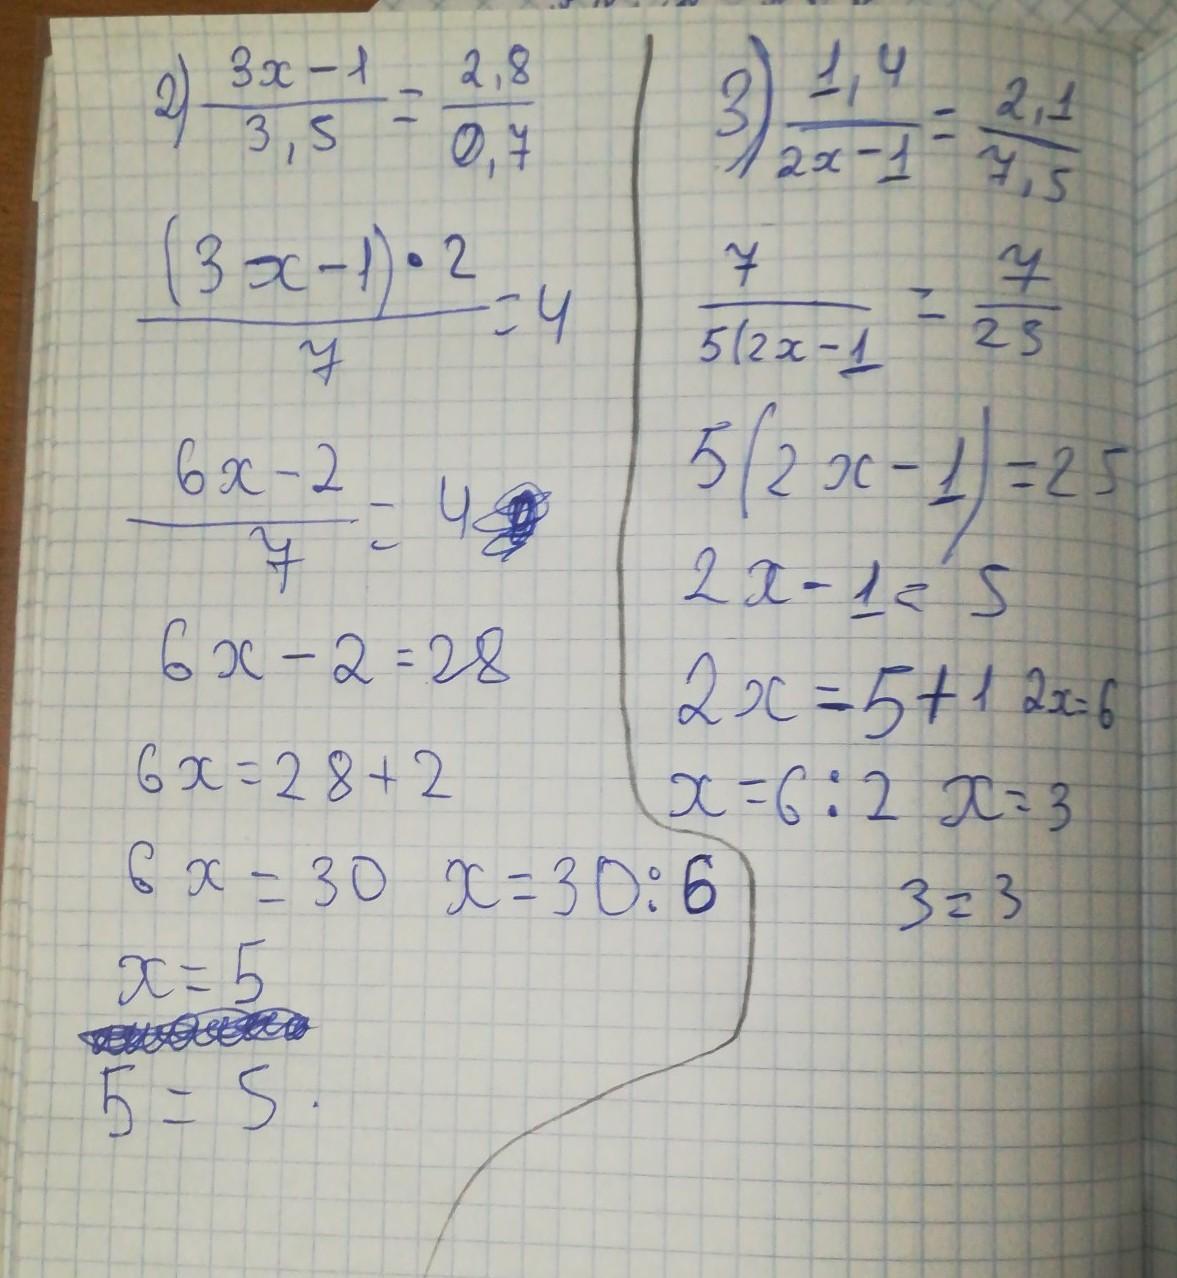 2) (3x-1)/3,5 = 2,8/0,7
((3x-1)·2)/7 = 4
(6x-2)/7 = 4
6x-2=28
6x=28+2
6x=30 x=30:6
x=5
5=5.
3) 1,4/(2x-1) = 2,1/7,5
7/(5(2x-1) = 7/25
5(2x-1)=25
2x-1=5
2x=5+1 2x=6
x=6:2 x=3
3=3